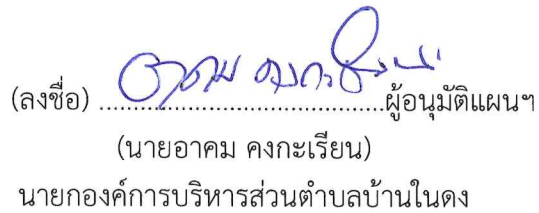 (ลงชื่อ) ................................................ผู้อนุมัติแผนฯ
(นายอาคม คงกะเรียน)
นายกองค์การบริหารส่วนตำบลบ้านในดง